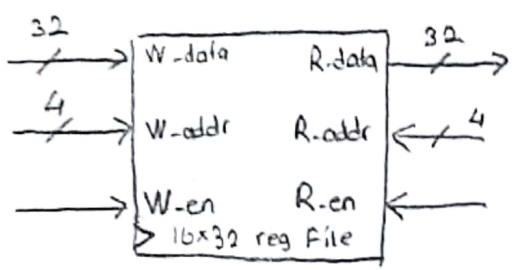 32
W_data
R_data
32
4
W_addr
R_addr
4
W_en
R_en
16x32 reg File